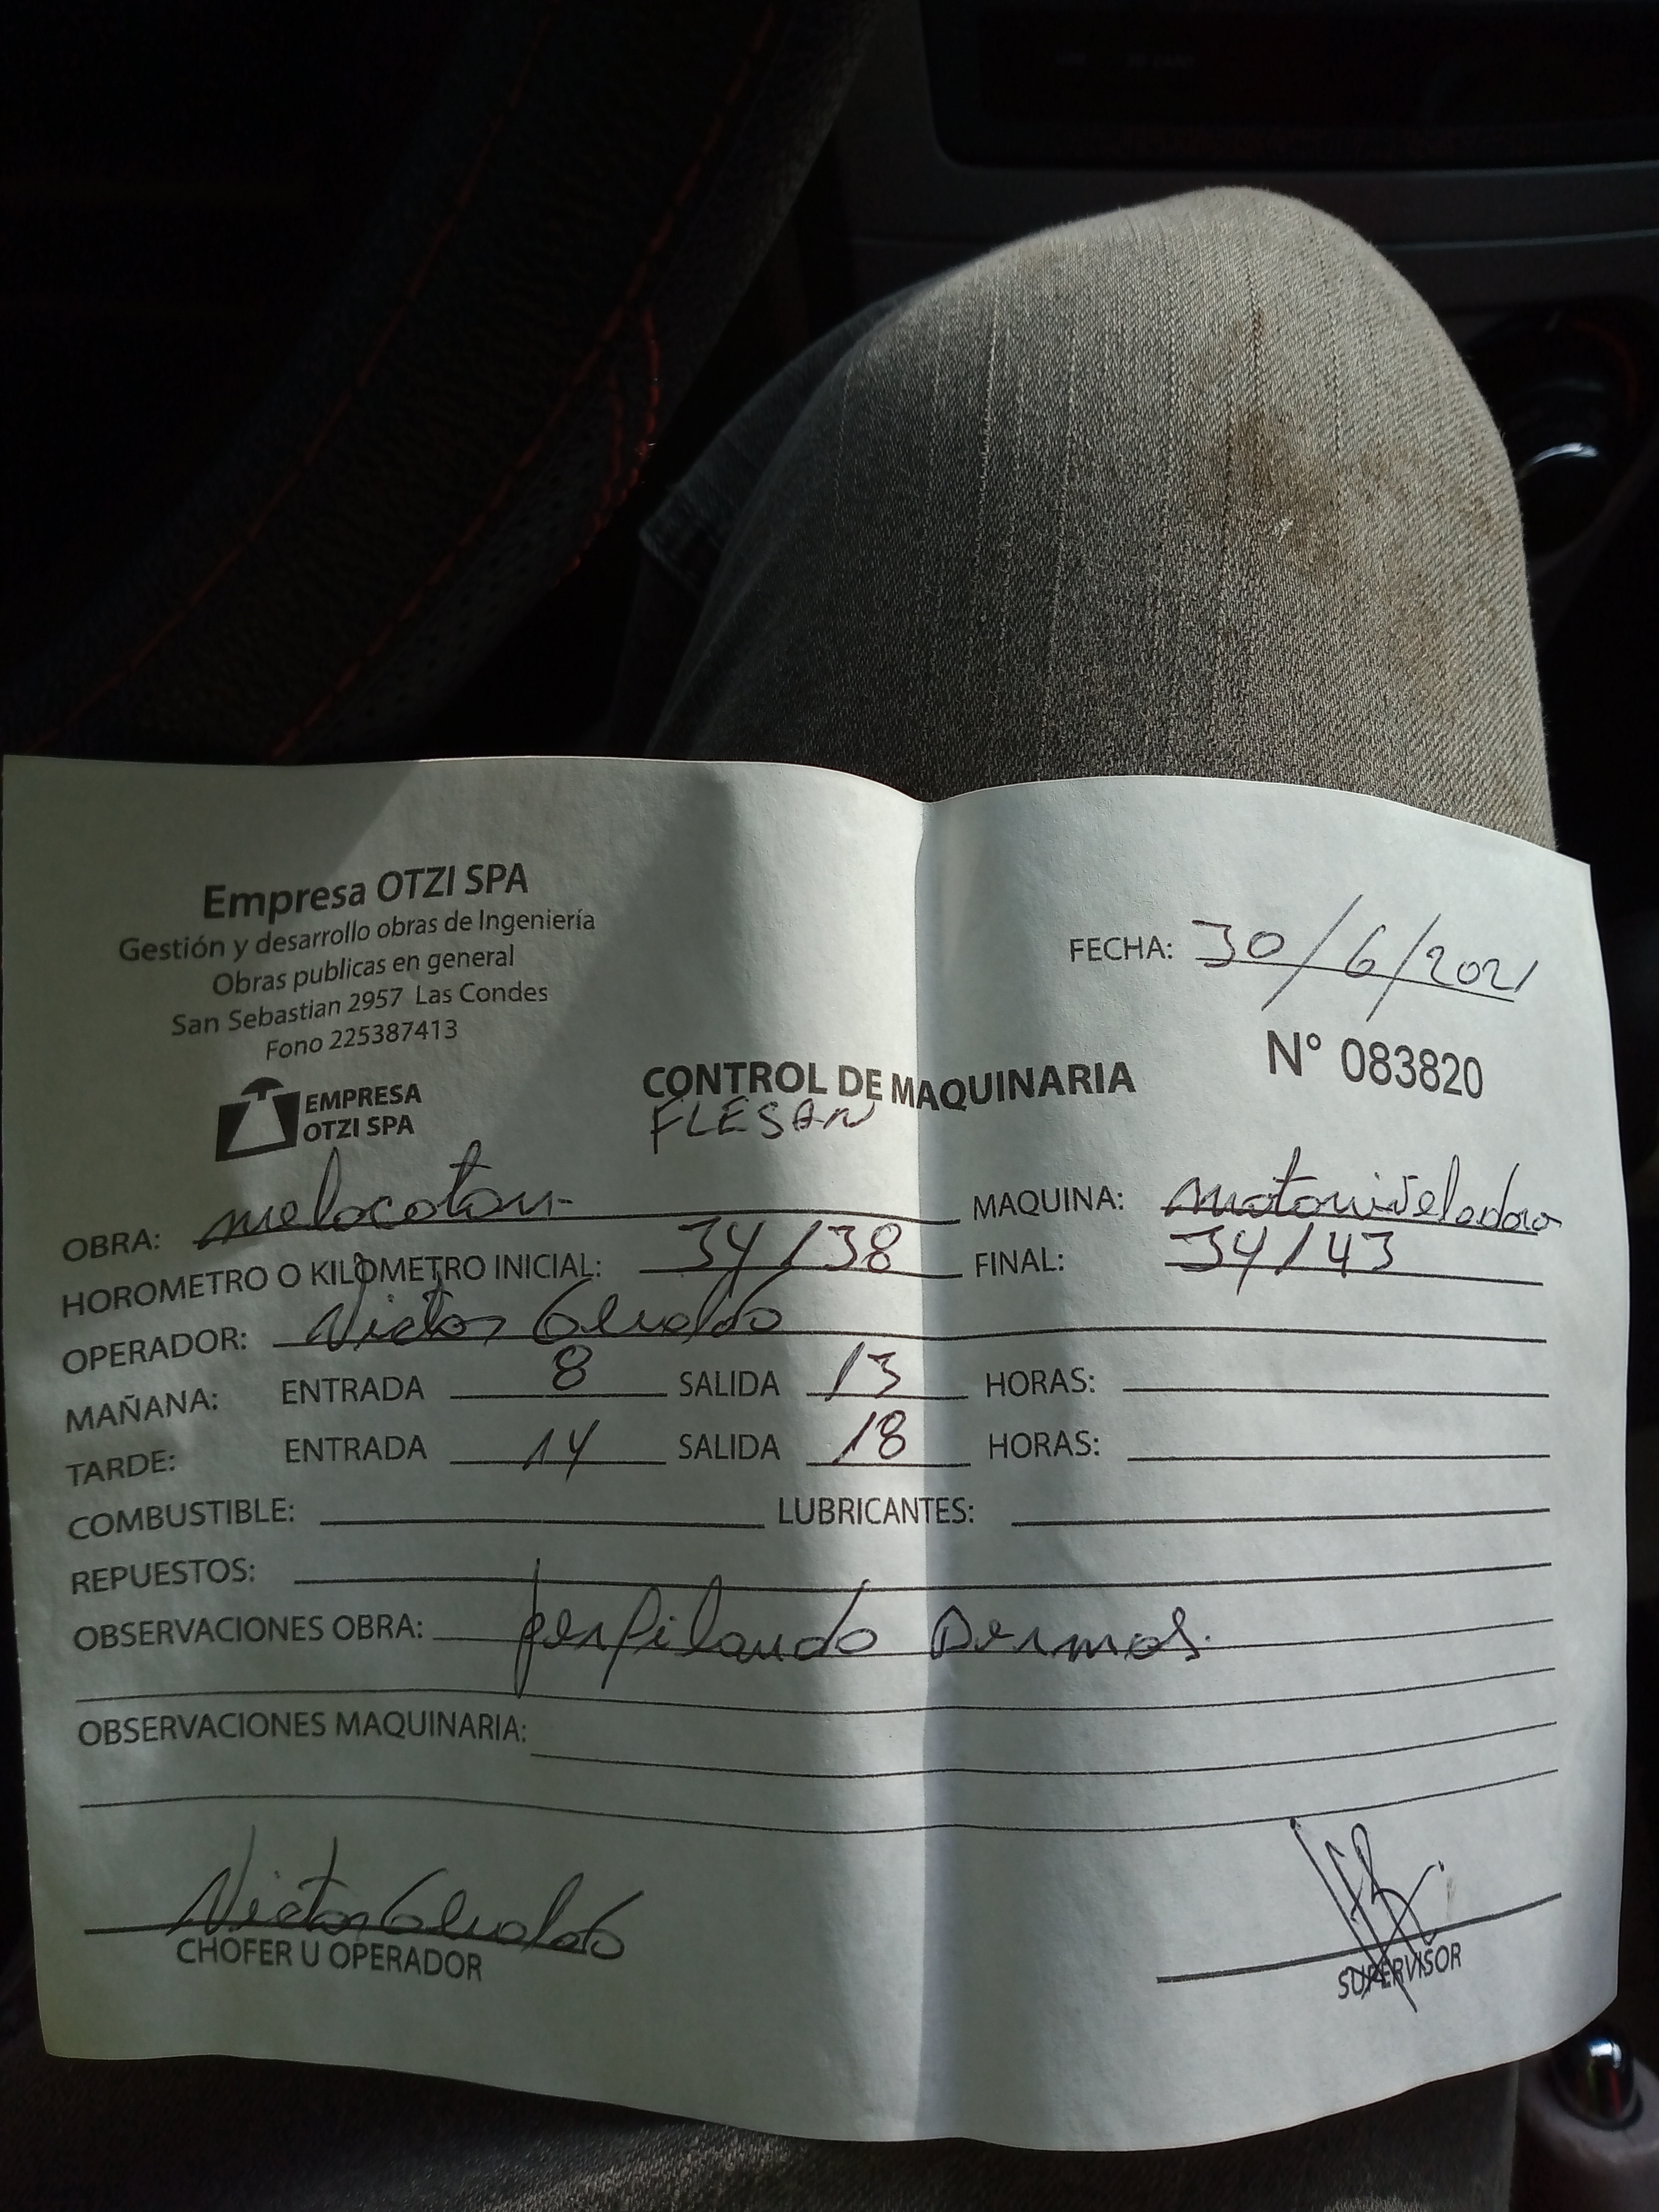 Empresa OTZI SPA
Gestión y desarrollo obras de Ingeniería
Obras publicas en general
San Sebastian 2957 Las Condes
Fono 225387413
EMPRESA
OTZI SPA
FECHA: 30/6/2021
N° 083820
CONTROL DE MAQUINARIA
FLESAN
OBRA: melocoton MAQUINA: motoniveladora
HOROMETRO O KILOMETRO INICIAL: 34/38 FINAL: 34/43
OPERADOR: Victor
MAÑANA: ENTRADA 8 SALIDA 13 HORAS:
TARDE: ENTRADA 14 SALIDA 18 HORAS:
COMBUSTIBLE: LUBRICANTES:
REPUESTOS:
OBSERVACIONES OBRA: perfilando
OBSERVACIONES MAQUINARIA:
Victor
CHOFER U OPERADOR
SUPERVISOR